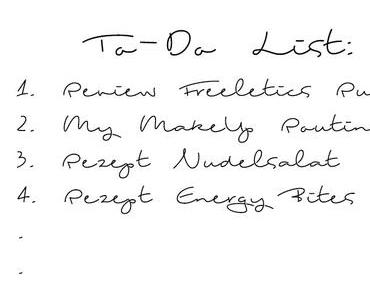 To-Do List:
1. Review Freeletics Ru
2. My MakeUp Routin
3. Rezept Nudelsalat
4. Rezept Energy Bites
.
.